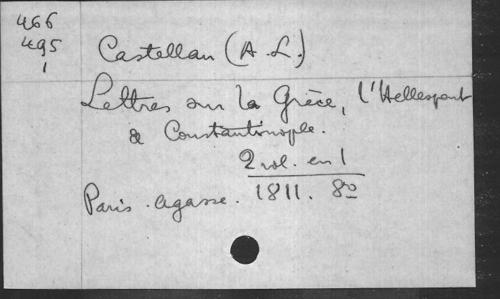 466
495
1
Castellan (A. L.)
Lettres sur la Grèce, l'Hellespont
& Constantinople.
2 vol. en 1
Paris. Agasse. 1811. 8º